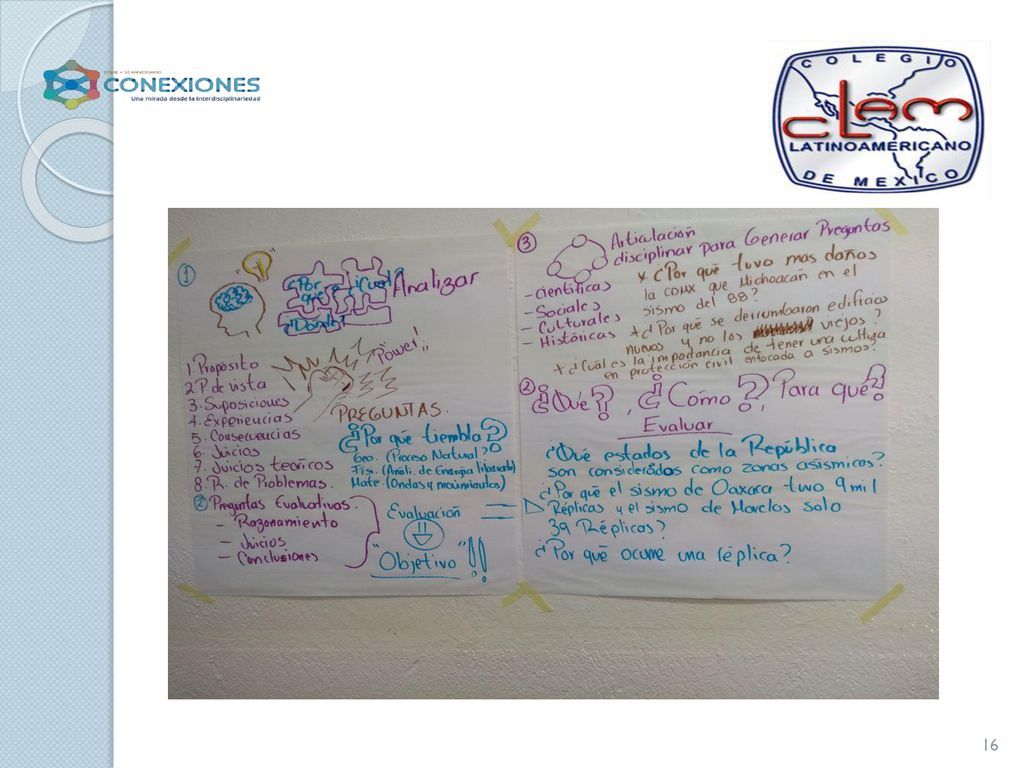 CONEXIONES
Una mirada desde la interdisciplinariedad
COLEGIO
CLAM
LATINOAMERICANO
DE MEXICO
1
¿Por qué?
¿Cuál?
¿Dónde?
Analizar
Power!!
1. Propósito
2. P. de vista
3. Suposiciones
4. Experiencias
5. Consecuencias
6. Juicios
7. Juicios teoricos
8. R. de Problemas.
PREGUNTAS.
¿Por qué tiembla?
Geo. (Proceso Natural)
Físi. (Análi. de Energía liberada)
Mate. (Ondas y movimientos)
2 Preguntas Evaluativas.
- Razonamiento
- Juicios
- Conclusiones
Evaluación
"Objetivo"!!
3
Articulación
disciplinar para Generar Preguntas
- Científicas
- Sociales
- Culturales
- Históricas
* ¿Por qué tuvo mas daños
la CDMX que Michoacán en el
sismo del 88?
* ¿Por qué se derrumbaron edificios
nuevos y no los viejos?
* ¿Cuál es la importancia de tener una cultura
en protección civil enfocada a sismos?
2 ¿Qué?, ¿Cómo?, Para qué?
Evaluar
¿Qué estados de la República
son considerados como zonas asísmicos?
¿Por qué el sismo de Oaxaca tuvo 9 mil
Réplicas y el sismo de Morelos solo
39 Réplicas?
¿Por qué ocurre una réplica?
16